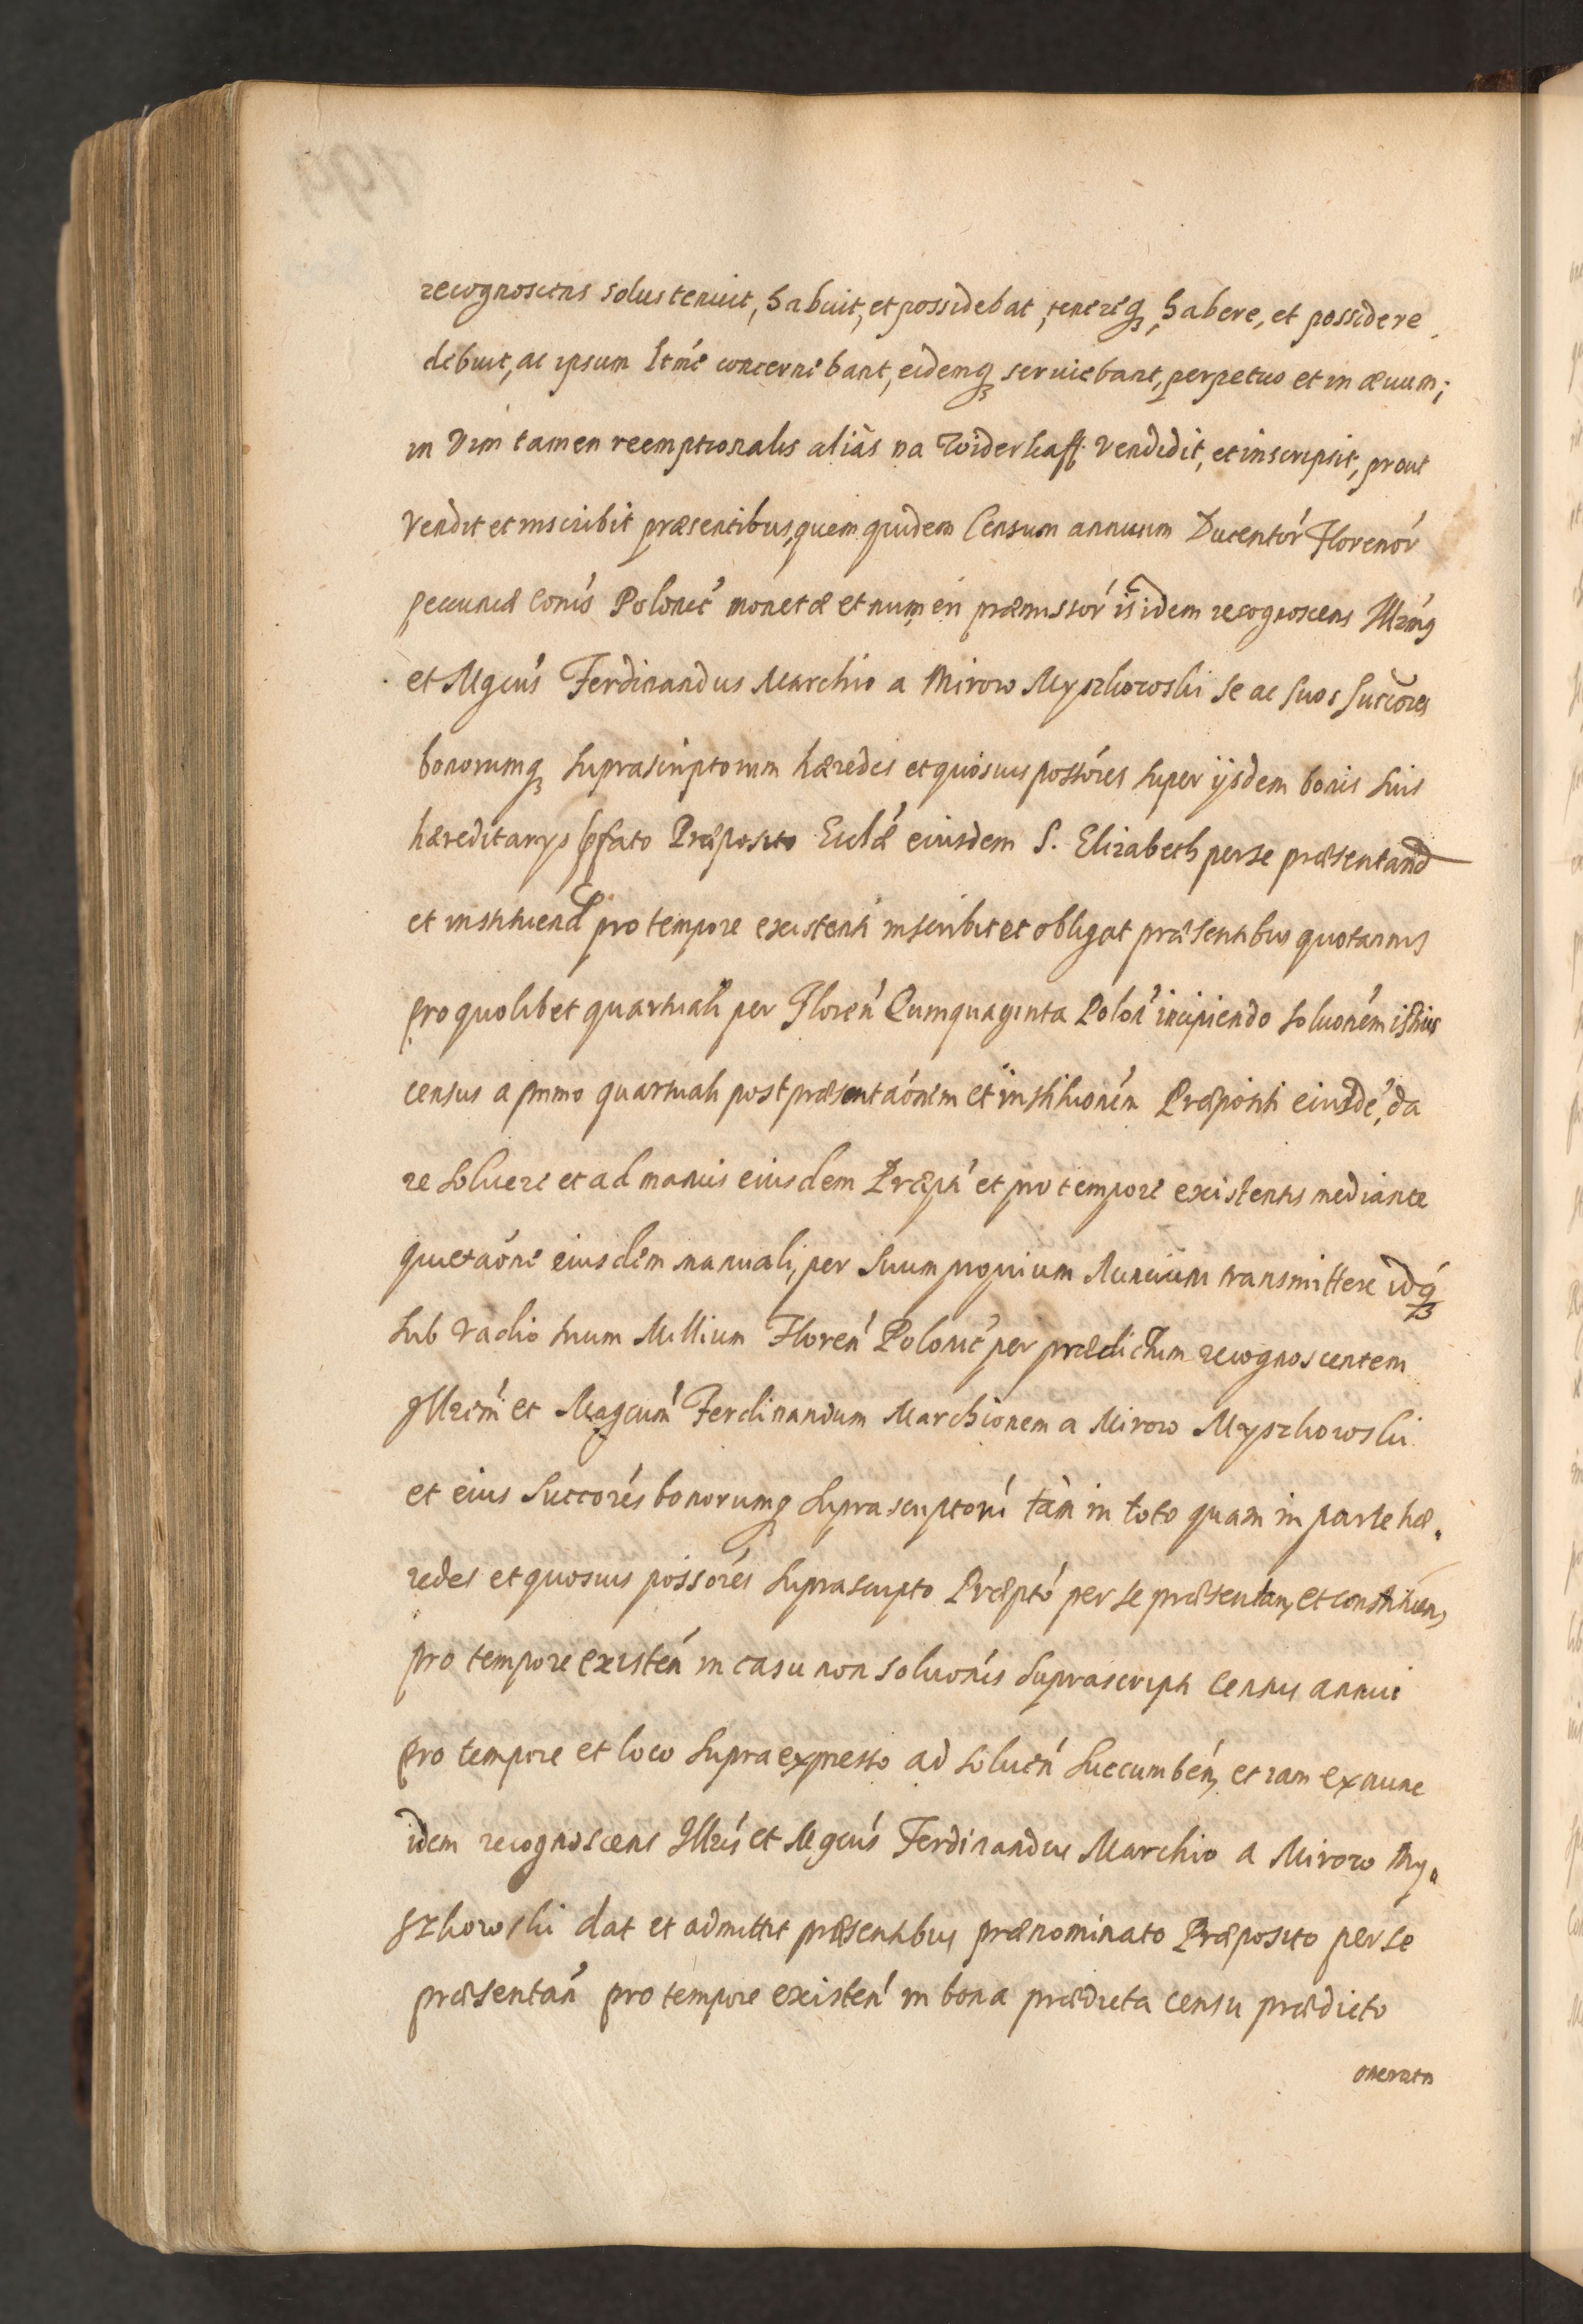 recognoscens solus tenuit, habuit, et possidebat, tenereq3, habere, et possidere
debuit, ac ipsum ltmé concernebant, eidemq3 seruiebant, perpetuo et in æuum;
in vim tamen reemptionalis aliàs na widerkaff vendidit, et inscripsit, prout
vendit et inscribit præsentibus, quem quidem Censum annuum Ducentor' Florenor'
pecuniæ co͞is Polonic' monetæ et numeri præmissor' is idem recognoscens Illris
et Mgcus' Ferdinandus Marchio a Mirow Myszkowski se ac suos succores
bonorumq3 suprascriptorum hæredes et quosuis possores super ijsdem bonis suis
hæreditarys pfato Præposito Eccl'æ eiusdem S. Elizabeth per se præsentand
et instituend pro tempore existenti inscribit et obligat præsentibus quotannis
pro quolibet quartuali per Floren' Quinquaginta Polon' incipiendo soluo͞nem istius
census a primo quartuali post præsentao͞nem et instituo͞nem Præpositi eiusde', da
re soluere et ad manus eiusdem Præpti' et pro tempore existentis mediante
quietao͞ne eiusdem manuali, per suum proprium Nuncium transmittere idq3
sub vadio trium Millium Floren' Polonic' per prædictum recognoscentem
Illrem' et Magcum' Ferdinandum Marchionem a Mirow Myszkowski
et eius succores' bonorumq3 suprascriptoru' tàm in toto quam in parte hæ-
redes et quosuis possores' suprascripto Præpto' per se præsentan, et constituen,
pro tempore existen' in casu non soluo͞nis suprascripti census annui
pro tempore et loco supra expresso ad soluen' succumben, et iam ex nunc
idem recognoscens Illris' et Mgcus' Ferdinandus Marchio a Mirow My-
szkowski dat et admittit præsentibus prænominato Præposito per se
præsentan' pro tempore existen' in bona prædicta censu prædicto
onerata